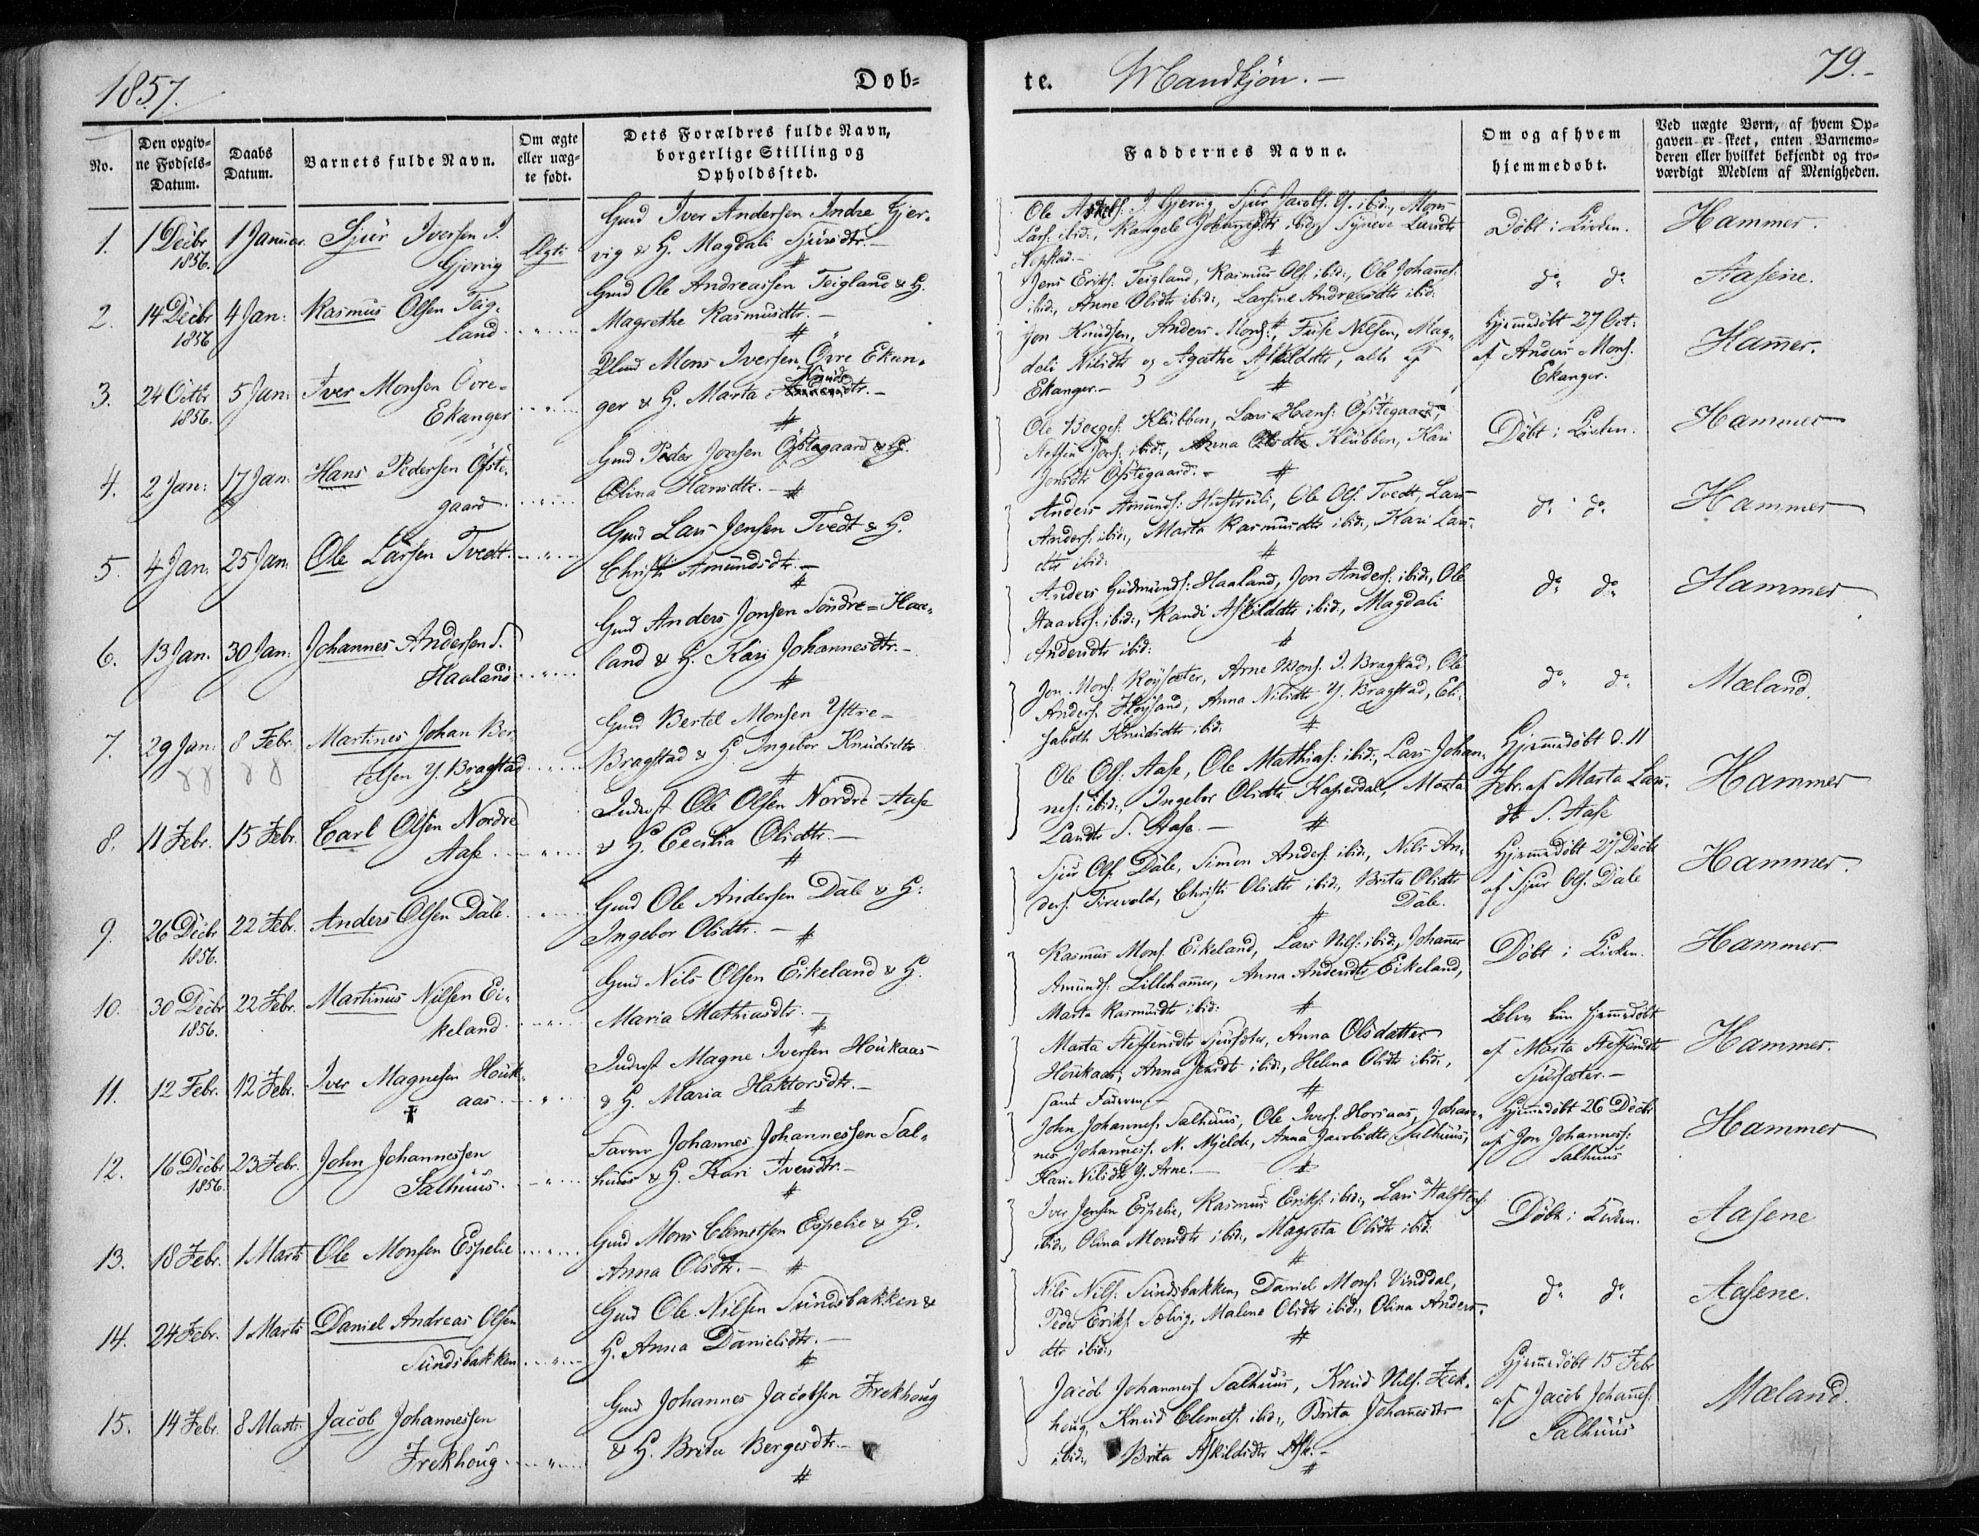 1857.
Døb=
te. Mandkjøn.-
79.-
No.
Den opgiv=
ne Fødsels=
Datum.
Daabs
Datum.
Barnets fulde Navn.
Om ægte
eller uæg=
te født.
Dets Forældres fulde Navn,
borgerlige Stilling og
Opholdssted.
Faddernes Navne.
Om og af hvem
hjemmedøbt.
Ved uægte Børn, af hvem Op=
gaven er skeet, enten Barnemo=
deren eller hvilket bekjendt og tro=
værdigt Medlem af Menigheden.
1. 1 Decbr 1856. 1 Januar. Sjur Iversen I.
Gjervig Ægte
Gmd Iver Andersen Indre Gjer-
vig & H. Magdali Sjursdtr.-
Sjur Jacobs. Y. ibid:, Mons
Lars. ibid:, Rangele Johannesdtr ibid:, Synneve Larsdtr
Døbt i Kirken. Hammer.
2. 14 Decbr 1856 4 Jan: Rasmus Olsen Teig-
land
Gmd Ole Andreassen Teigland & H.
Magrethe Rasmusdtr.-
Jens Eriks. Teigland, Rasmus Ols. ibid:, Ole Johans.
ibid:, Anne Olsdtr ibid:, Larsine Andreasdtr ibid:
do do Aasene.
3. 24 Octbr 1856. 5 Jan: Iver Monsen Övre-
Ekanger
Mons Iversen Övre Ekan-
ger & H. Marta Knudsdtr.-
Jon Knudsen, Anders Mons:, Nilsen, Mag-
deli Nilsdtr og Agathe Askilddtr, alle af
Ekanger.-
Hjemmedøbt 27 Oct:
af Anders Mons.
Ekanger.
Hamer.
4. 2 Jan: 17 Jan: Hans Pedersen Öfste-
gaard
Gmd Peder Jonsen Öfstegaard & H.
Olina Hansdtr.-
Ole Børges. Klubben, Lars Hans. Öfstegaard,
Steffen Jons. ibid:, Anna Olsdtr Klubben, Kari
Jonsdtr Öfstegaard.-
Døbt i Kirken. Hammer
5. 4 Jan. 25 Jan: Ole Larsen Tvedt.
Gmd Lars Jensen Tvedt & H.
Christi Amundsdtr.-
Anders Amunds: Ole Ols. Tvedt, Lars
Anders. ibid:, Marta Rasmusdtr ibid:, Kari Lars-
dtr ibid:
do do Hammer
6. 13 Jan. 30 Jan: Johannes Andersen S.
Haaland
Gmd Anders Jonsen Söndre-Haa-
land & H. Kari Johannesdtr.-
Anders Gudmunds: Haaland, Jon Anders. ibid:, Ole
Haavers. ibid:, Randi Askilddtr ibid:, Magdali
Andersdtr ibid:
do do Hammer
7. 29 Jan: 8 Febr. Martines Johan Ber-
telsen Y Bragstad
Gmd Bertel Monsen Yttre-
Bragstad & H. Ingebor Knudsdtr
Jon Mons. Röysæter, Arne Mons. I. Bragstad, Ole
Anders. Höysand, Anna Nilsdtr Y. Bragstad, Eli-
sabeth Knudsdtr ibid.
do do Mæland.
8. 11 Febr. 15 Febr. Carl Olsen Nordre
Aase
Inderst Ole Olsen Nordre Aase
& H. Cecilia Olsdtr.-
Ole Ols. Aase, Ole Mathias: ibid:, Lars Johan-
nes. ibid:, Ingebor Olsdtr Marta
Larsdtr S. Aase.-
Hjemmedøbt d. 11
Febr. af Marta Lars-
dtr S. Aase
Hammer
9. 26 Decbr 1856. 22 Febr. Anders Olsen Dale.
Gmd Ole Andersen Dale & H:
Ingebor Olsdtr.-
Sjur Ols. Dale, Simon Anders. ibid:, Nils An-
ders. Tirevold, Christi Olsdtr ibid:, Brita Olsdtr
Dale.
Hjemmedøbt 27 Decbr
af Sjur Ols. Dale
Hammer.
10. 30 Decbr 1856. 22 Febr. Martinus Nilsen Ei-
keland
Gmd Nils Olsen Eikeland & H.
Maria Mathiasdtr.-
Rasmus Mons. Eikeland, Lars Nils. ibid:, Johannes
Amunds. Lillehamer, Anna Andersdtr Eikeland,
Marta Rasmusdtr ibid:
Døbt i Kirken. Hammer
11. 12 Febr. 12 Febr. Iver Magnesen Houk-
aas
†
Inderst Magne Iversen Houkaas
& H. Maria Haktorsdtr.-
Marta Steffensdtr Anna Olsdatter
Houkaas, Anna Jensdtr ibid:, Helena Olsdtr ibid:,
samt Faderen.-
Blev kun hjemmedøbt
af Marta Steffensdtr
Hammer.
12. 16 Decbr 1856. 23 Febr. John Johannessen
Salhuus.
Farver Johannes Johannessen Sal-
huus & H. Kari Iversdtr.-
John Johannes. Salhuus, Ole Ivers. Horsaas, Johan-
nes Johannes. N. Mjelde, Anna Jacobsdtr Salhuus,
Kari Nilsdtr Y. Arne.-
Hjemmedøbt 26 Decbr
af Jon Johannes:
Salhuus
Hammer
13. 18 Febr. 1 Marts Ole Monsen Espelie
Gmd Mons Clemetsen Espelie & H.
Anna Olsdtr.-
Iver Jensen Espelie, Rasmus Eriks. ibid:, Lars
ibid:, Olina Monsdtr ibid:, Magreta Olsdtr ibid:
Døbt i Kirken. Aasene
14. 24 Febr. 1 Marts Daniel Andreas Olsen
Sundsbakken
Gmd Ole Nilsen Sundsbakken &
H. Anna Danielsdtr.-
Nils Nils. Sundsbakken, Daniel Mons. Vinddal,
Peder Eriks. Sælvig, Malene Olsdtr ibid:, Olina Anders-
dtr ibid:,
do do Aasene.
15. 14 Febr. 8 Marts. Jacob Johannessen
Frekhoug
Gmd Johannes Jacobsen Frekhoug
& H. Brita Bergesdtr.-
Jacob Johannes. Salhuus, Knud Nils. Frek-
houg, Knud Clemets. ibid:, Brita Johannesdtr
ibid:, Brita Askildsdtr Ask.-
Hjemmedøbt 15 Febr
af Jacob Johans:
Salhuus
Mæland.